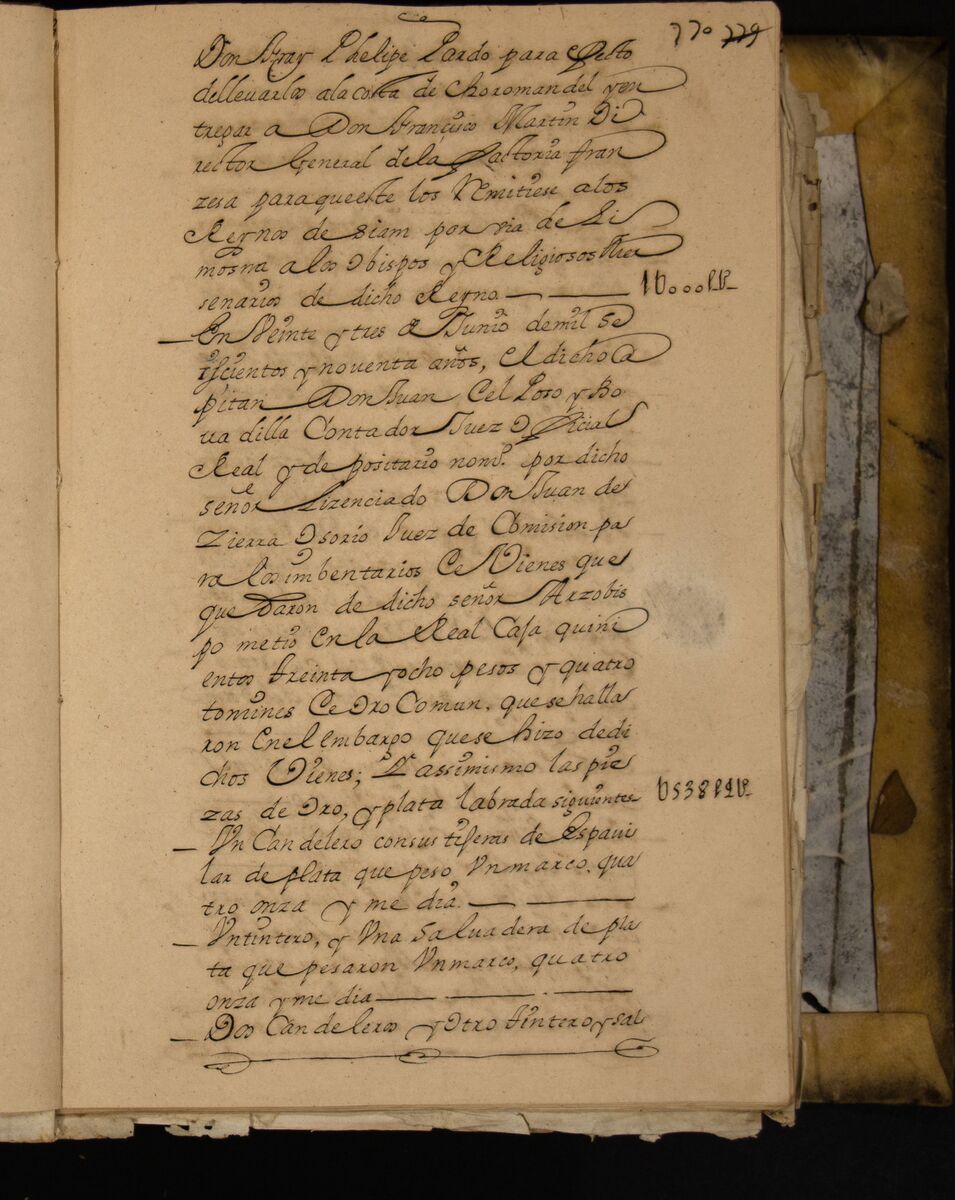 770 779
Don Fray Phelipe Pardo para efecto
dellevarlos ala costa de choromandel yen
tregar a Don Francisco Martin Di
rector General dela Factoria fran
zesa para queeste los Remitiese alos
Reynos de siam por via de Li
mosna alos obispos y Religiosos
senarios de dicho Reyno
En Veinte y tres de Junio demil se
iscientos y noventa años, el dicho Ca
pitan Don Juan Cel Poso y Bo
uadilla Contador Juez oficial
Real y depositario nom.º por dicho
señor Lizenciado Don Juan de
Zierra osorio Juez de Comision pa
ra los imbentarios Ce Vienes que
quedaron de dicho señor Arzobis
po metio en la Real Casa quini
entos treinta yocho pesos y quatro
tomines Ce oro Comun, que se halla
ron Enel embargo quese hizo dedi
chos Vienes; Y assimismo las pie
zas de oro, y plata labrada siguientes
U538 P
Un Candelero consus tiseras de espavi
lar de plata que peso Un marco, qua
tro onza y media
Un tintero, y Una Salvadera de pla
ta que pesaron Un marco, quatro
onza y media
Dos Candeleros y otro tintero y sal